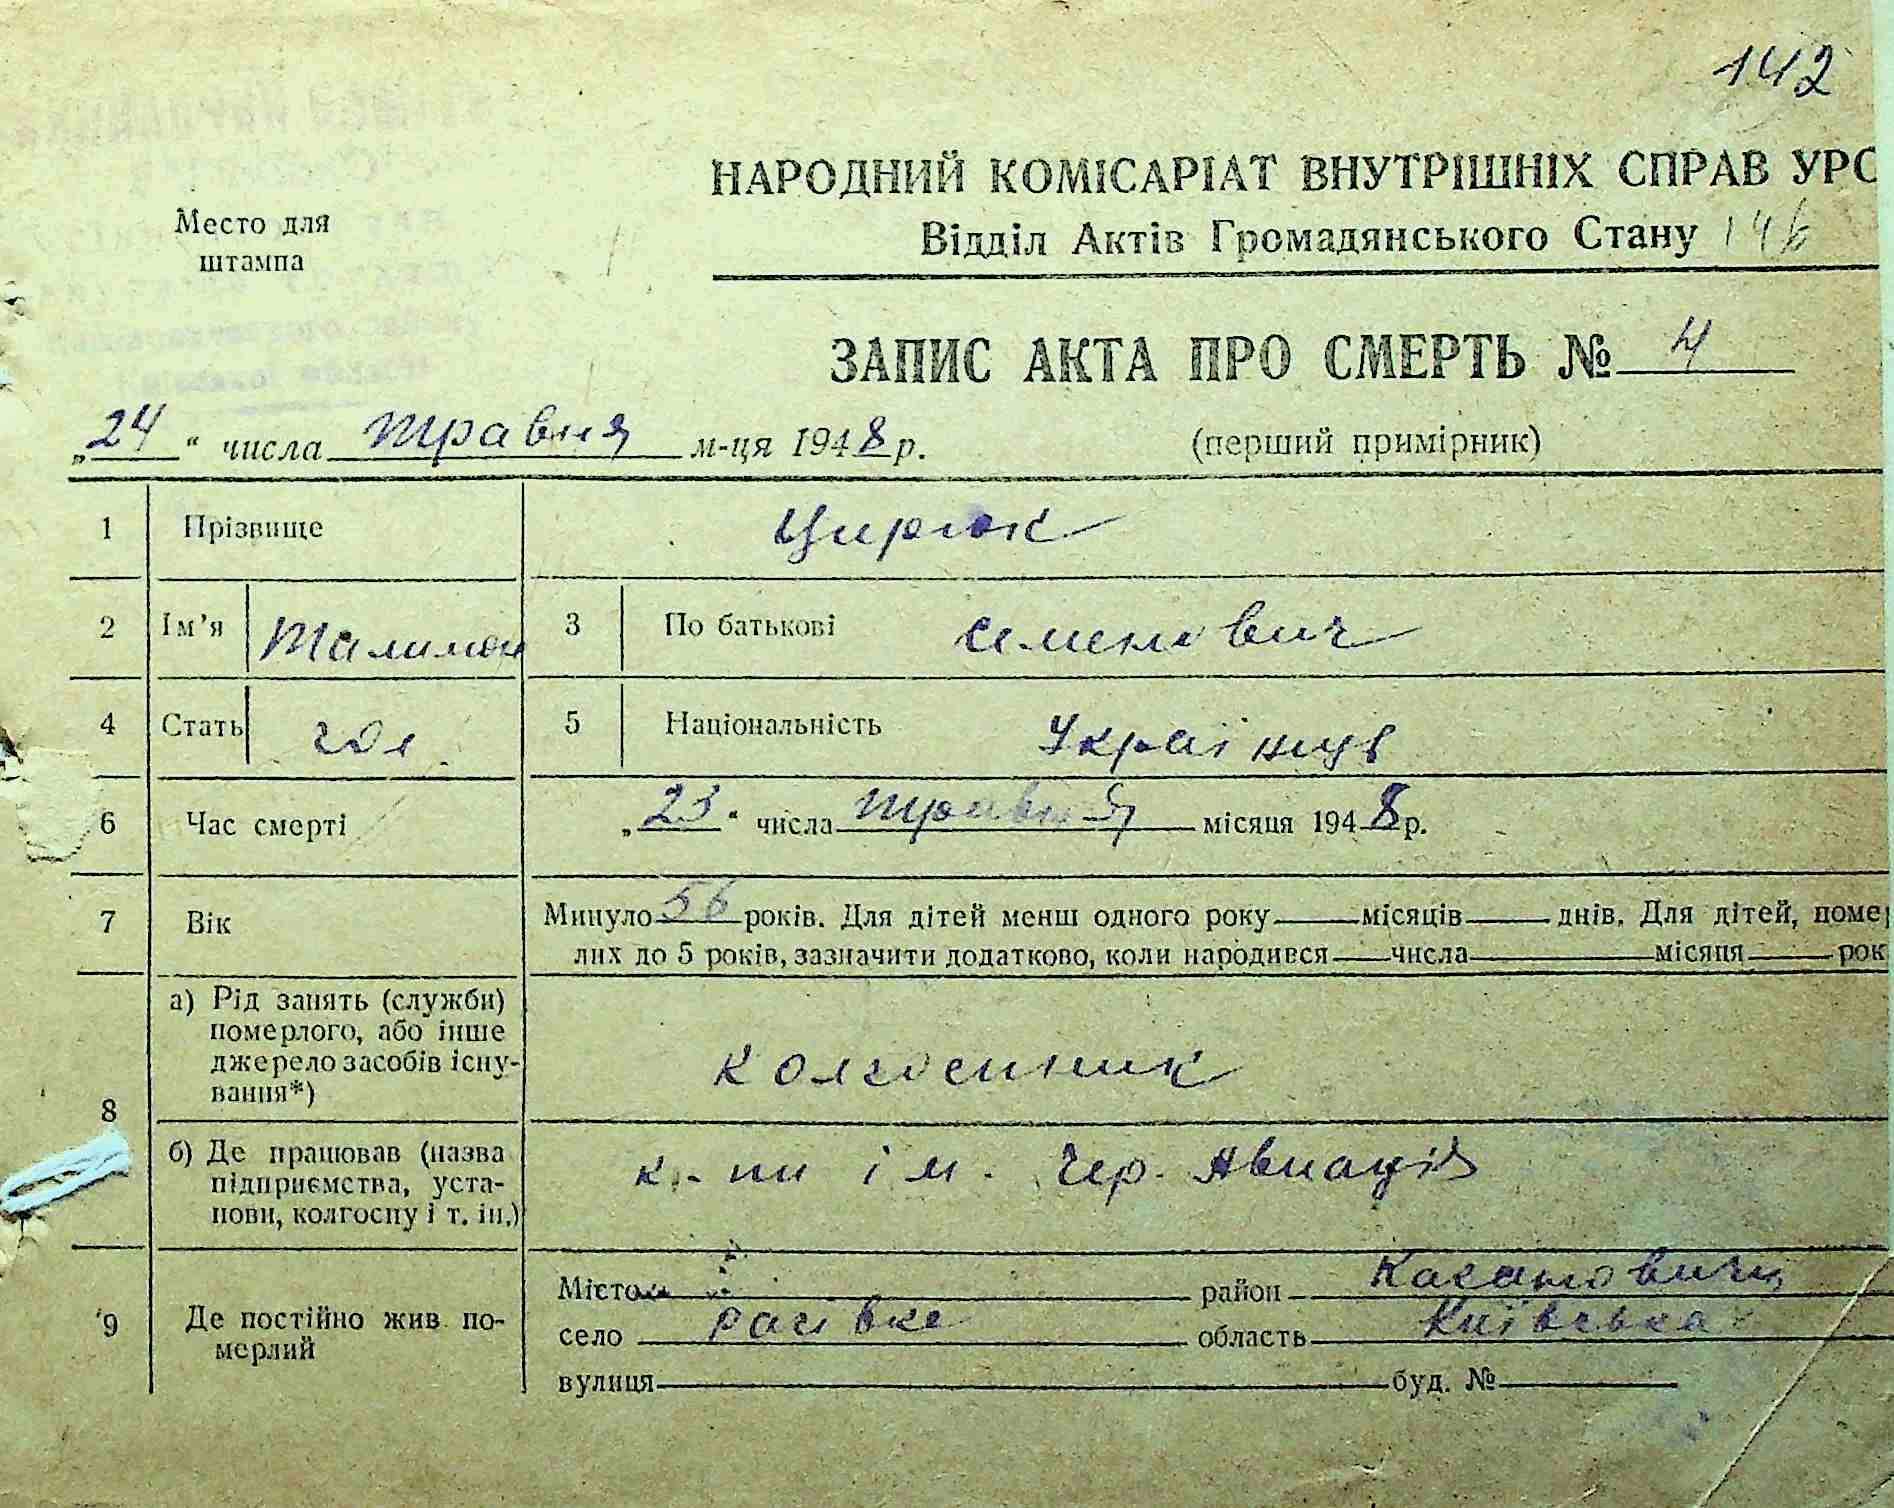 142
НАРОДНИЙ КОМІСАРІАТ ВНУТРІШНІХ СПРАВ УРС
Место для штампа
Відділ Актів Громадянського Стану 146
ЗАПИС АКТА ПРО СМЕРТЬ № 4
„24“ числа травня м-ця 1948 р.
(перший примірник)
1 Прізвище Цирюк
2 Ім’я Талимон 3 По батькові Семенович
4 Стать чол 5 Національність Українць
6 Час смерті „23“ числа травня місяця 1948 р.
7 Вік Минуло 56 років. Для дітей менш одного року місяців днів. Для дітей, помер
лих до 5 років, зазначити додатково, коли народився числа місяця рок
8 а) Рід занять (служби)
померлого, або інше
джерело засобів існу-
вання*)
колгоспник
б) Де працював (назва
підприємства, уста-
нови, колгоспу і т. ін.)
к-пи ім. Чер. Авиація
9 Де постійно жив по-
мерлий
Місто район Каганович
село Расівка область Київська
вулиця буд. №